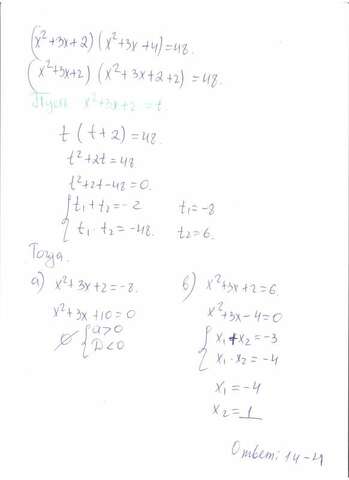 (x²+3x+2)(x²+3x+4)=48.
(x²+3x+2)(x²+3x+2+2)=48.
Пусть x²+3x+2=t.
t(t+2)=48.
t²+2t=48.
t²+2t-48=0.
{t₁+t₂=-2 t₁=-8
t₁·t₂=-48. t₂=6.
Тогда.
а) x²+3x+2=-8. б) x²+3x+2=6.
x²+3x+10=0 x²+3x-4=0
∅ {a>0 {x₁+x₂=-3
D<0 x₁·x₂=-4
x₁=-4
x₂=1
Ответ: 1 и -4